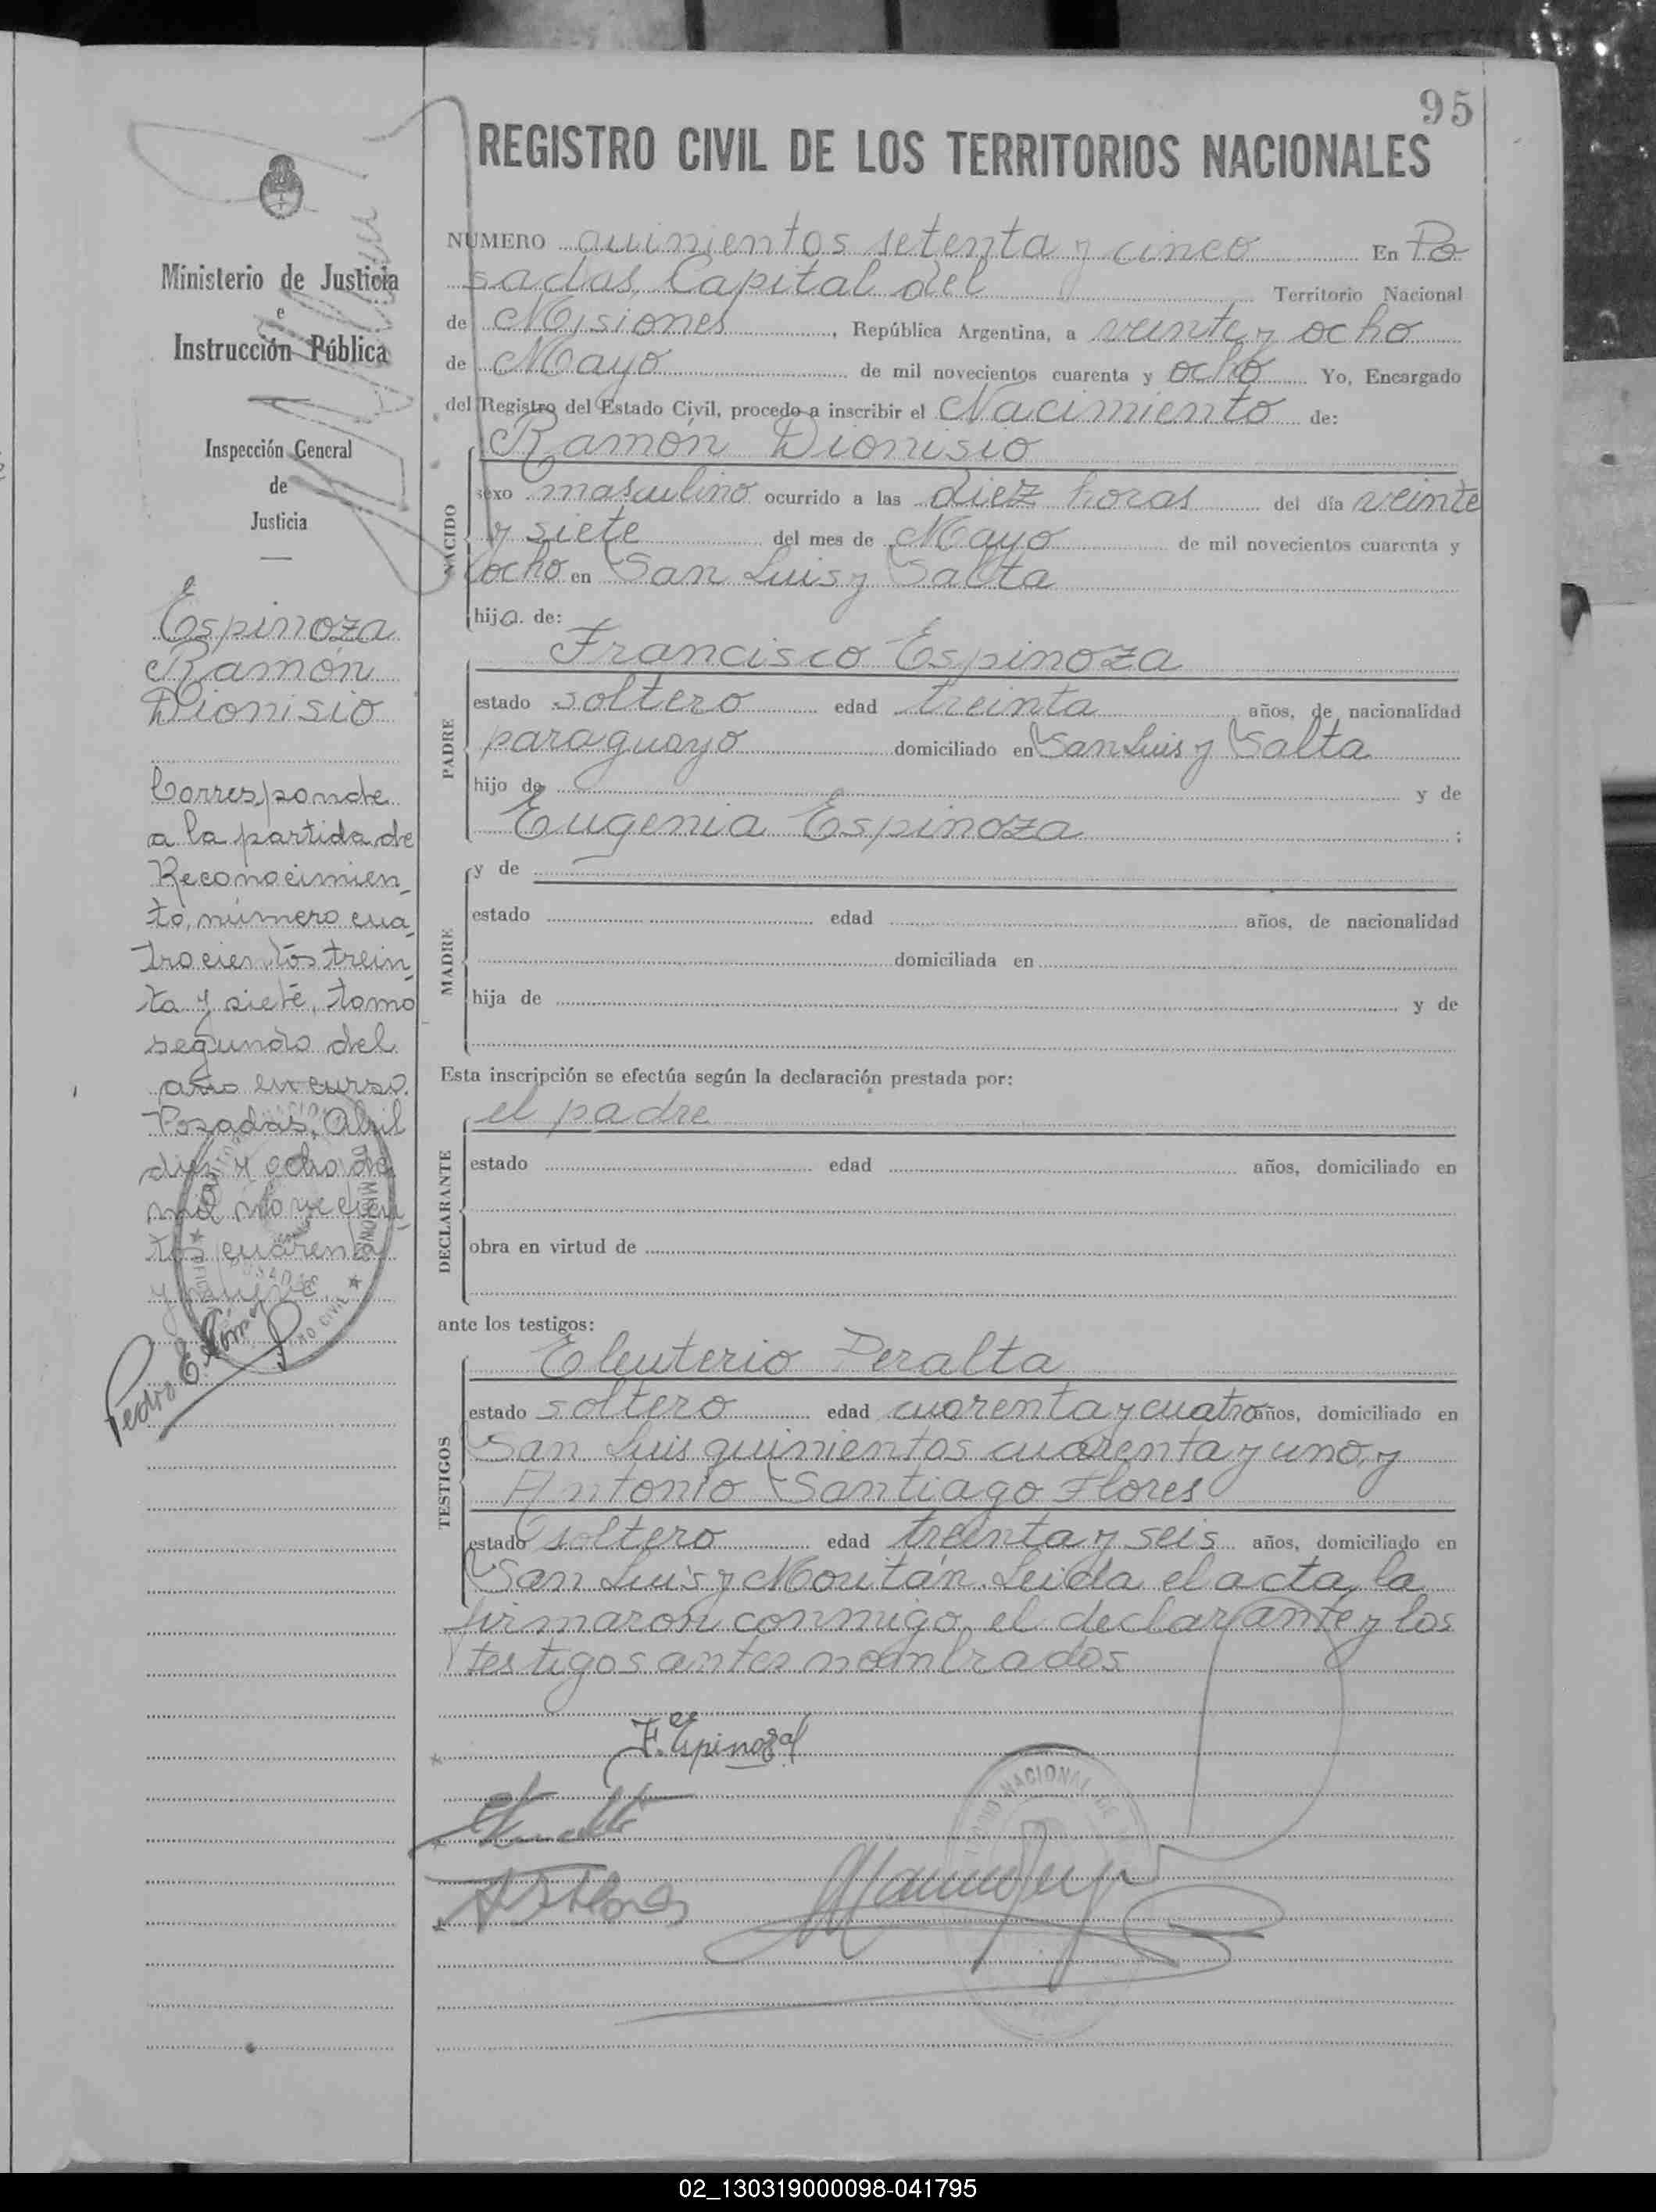 95
REGISTRO CIVIL DE LOS TERRITORIOS NACIONALES
Ministerio de Justicia
e
Instrucción Pública
Inspección General
de
Justicia
Espinoza
Ramón
Dionisio
Corresponde
a la partida de
Reconocimien_
to, número cua_
trocientos trein_
ta y siete, tomo
segundo del
año en curso.
Posadas, Abril
diez y ocho de
mil novecien_
tos cuarenta
y nueve
Pedro E.
NUMERO quinientos setenta y cinco En Po
sadas, Capital del Territorio Nacional
de Misiones, República Argentina, a veinte y ocho
de Mayo de mil novecientos cuarenta y ocho Yo, Encargado
del Registro del Estado Civil, procedo a inscribir el Nacimiento de:
NACIDO
Ramón Dionisio
sexo masculino ocurrido a las diez horas del día veinte
y siete del mes de Mayo de mil novecientos cuarenta y
ocho en San Luis y Salta
hijo. de:
PADRE
Francisco Espinoza
estado soltero edad treinta años, de nacionalidad
paraguayo domiciliado en San Luis y Salta
hijo de y de
Eugenia Espinoza ;
MADRE
y de
estado edad años, de nacionalidad
domiciliada en
hija de y de
Esta inscripción se efectúa según la declaración prestada por:
DECLARANTE
el padre
estado edad años, domiciliado en
obra en virtud de
ante los testigos:
TESTIGOS
Eleuterio Peralta
estado soltero edad cuarenta y cuatro años, domiciliado en
San Luis quinientos cuarenta y uno, y
Antonio Santiago Flores
estado soltero edad treinta y seis años, domiciliado en
San Luis y Moritán. Leida el acta, la
firmaron conmigo, el declarante y los
testigos antes nombrados
F. Espinoza
02_130319000098-041795